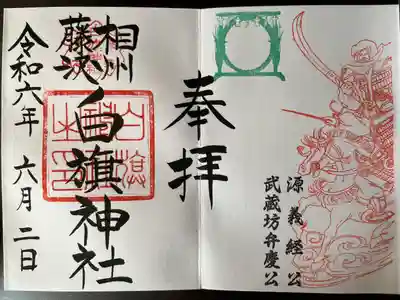 奉拝
源義経公
武蔵坊弁慶公
相州
藤沢
白旗神社
令和六年 六月二日